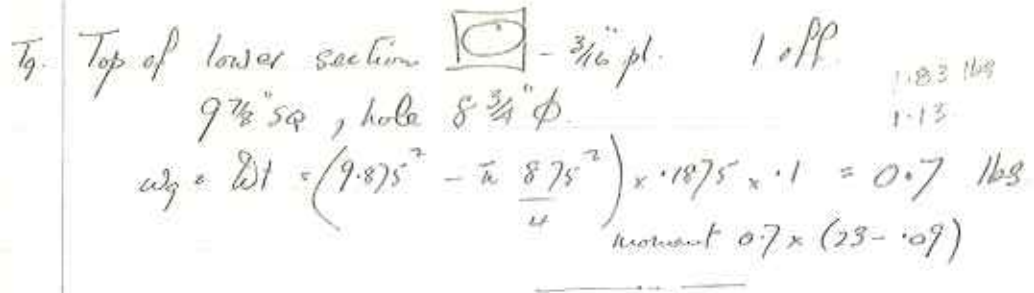 T9. Top of lower section - 3/16" pl. 1 off.
9 7/8" SQ, hole 8 3/4" φ.
1.83 lbs
1.13
w9 = Wt = (9.875² - π 875²/4) x .1875 x .1 = 0.7 lbs
moment 0.7 x (23 - .09)